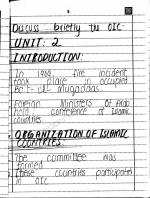 Discuss briefly the OIC:
UNIT: 2
INTRODUCTION:
In 1969, fire incident
took place in occupied
Bait-ul-Muqaddas
Foreign Ministers of Arab
hold conference of Islamic
countries
ORGANIZATION OF ISLAMIC
COUNTRIES:
The committee was
formed
These countries participated
in OIC